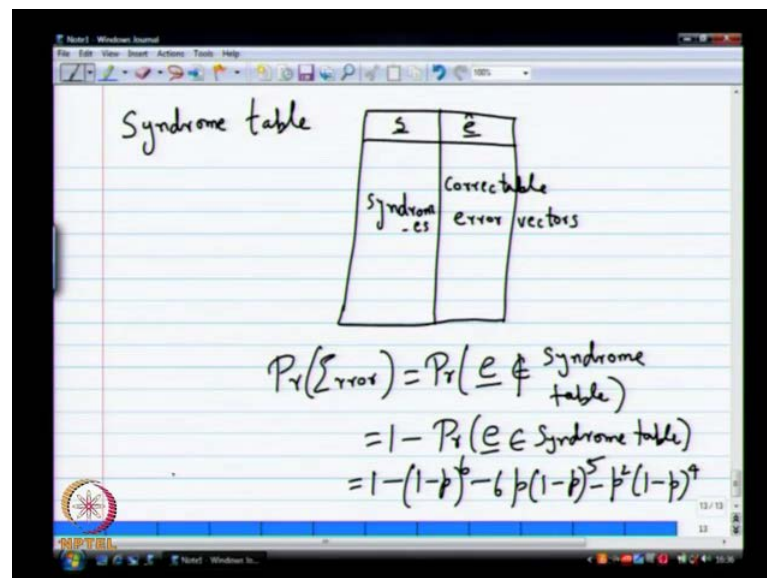 Note1 - Windows Journal
File Edit View Insert Actions Tools Help
100%
Syndrome table
s ê
syndrom
-es
correctable
error vectors
Pr(Error) = Pr(e ∉ syndrome
table)
= 1 - Pr(e ∈ Syndrome table)
= 1-(1-p)⁶-6p(1-p)⁵-p²(1-p)⁴
13 / 13
13
NPTEL
Note1 - Windows Jo...
16:36